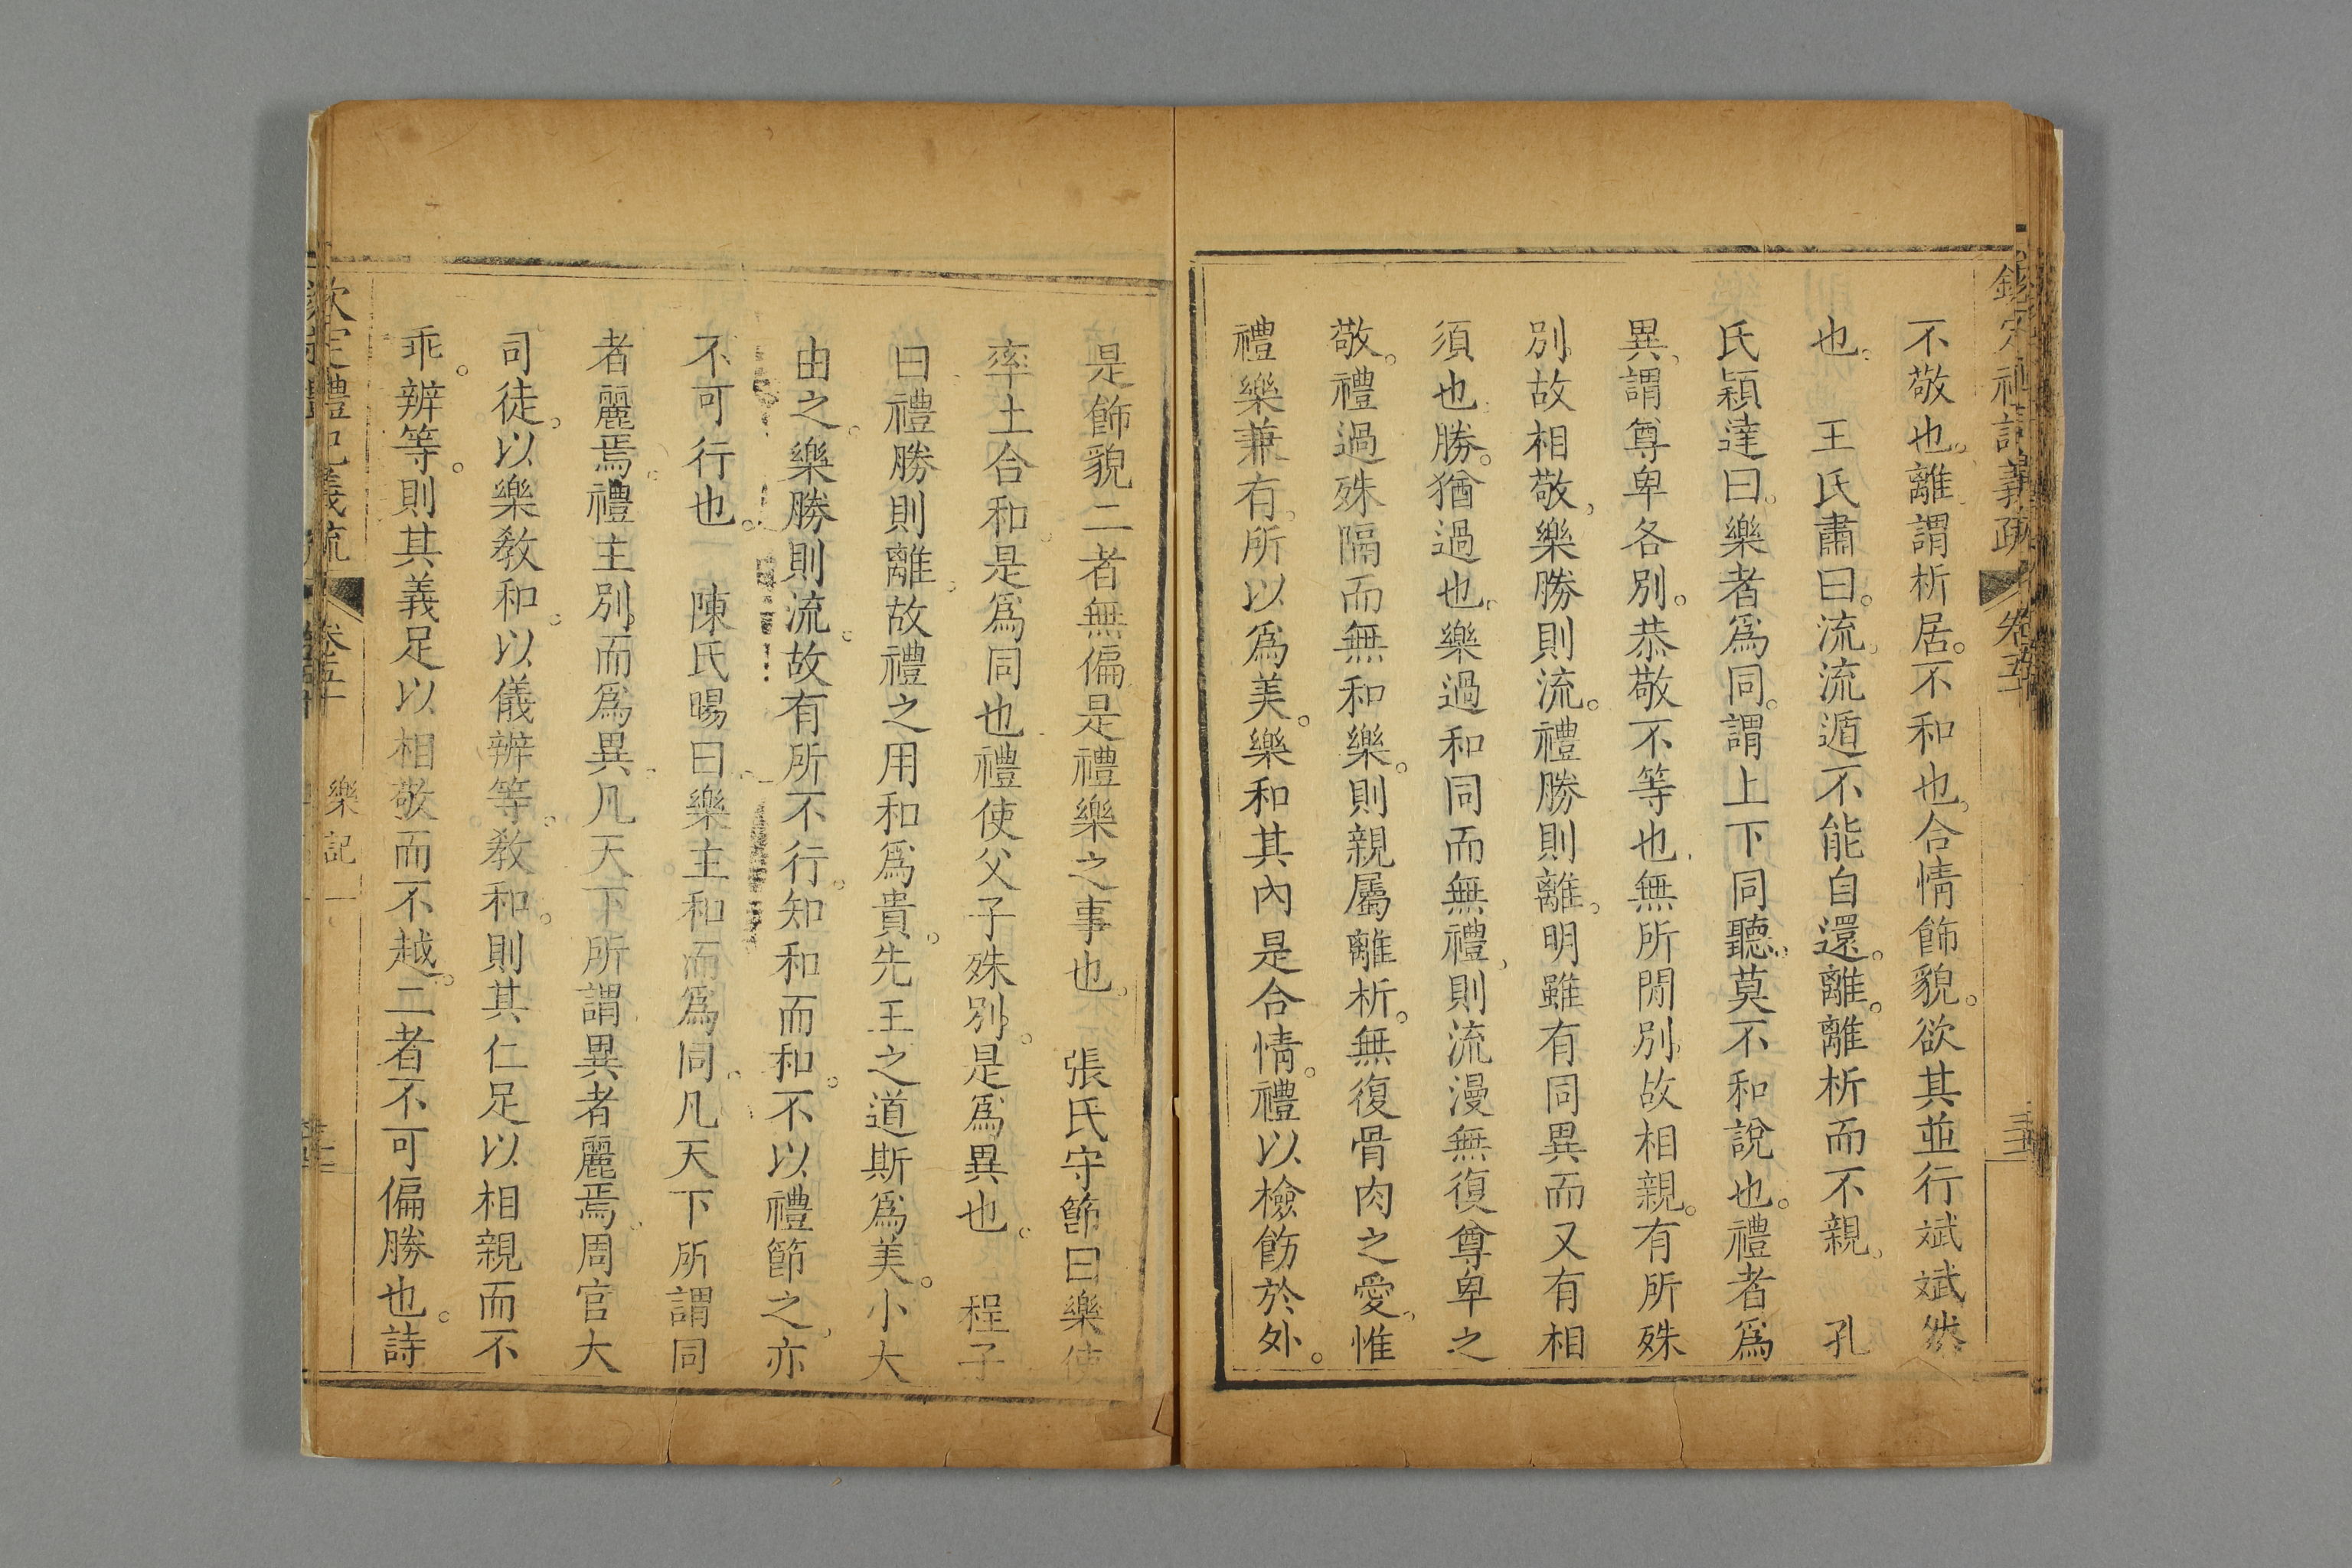 不敬也。離謂析居。不和也。合情飾貌。欲其並行斌斌然
也。　王氏肅曰。流。流遁不能自還。離。離析而不親。　孔
氏穎達曰。樂者爲同。謂上下同聽。莫不和說也。禮者爲
異。謂尊卑各別。恭敬不等也。無所閒別。故相親。有所殊
別。故相敬。樂勝則流。禮勝則離。明雖有同異而又有相
須也。勝。猶過也。樂過和同而無禮。則流漫無復尊卑之
敬。禮過殊隔而無和樂。則親屬離析。無復骨肉之愛。惟
禮樂兼有。所以爲美。樂和其內。是合情。禮以檢飭於外。
是飾貌。二者無偏。是禮樂之事也。　張氏守節曰。樂使
率土合和。是爲同也。禮使父子殊別。是爲異也。　程子
曰。禮勝則離。故禮之用和爲貴。先王之道斯爲美。小大
由之。樂勝則流。故有所不行。知和而和。不以禮節之。亦
不可行也。　陳氏暘曰。樂主和而爲同。凡天下所謂同
者麗焉。禮主別而爲異。凡天下所謂異者麗焉。周官大
司徒。以樂教和。以儀辨等。教和。則其仁足以相親而不
乖。辨等。則其義足以相敬而不越。二者不可偏勝也。詩
欽定禮記義疏　卷五十　樂記一